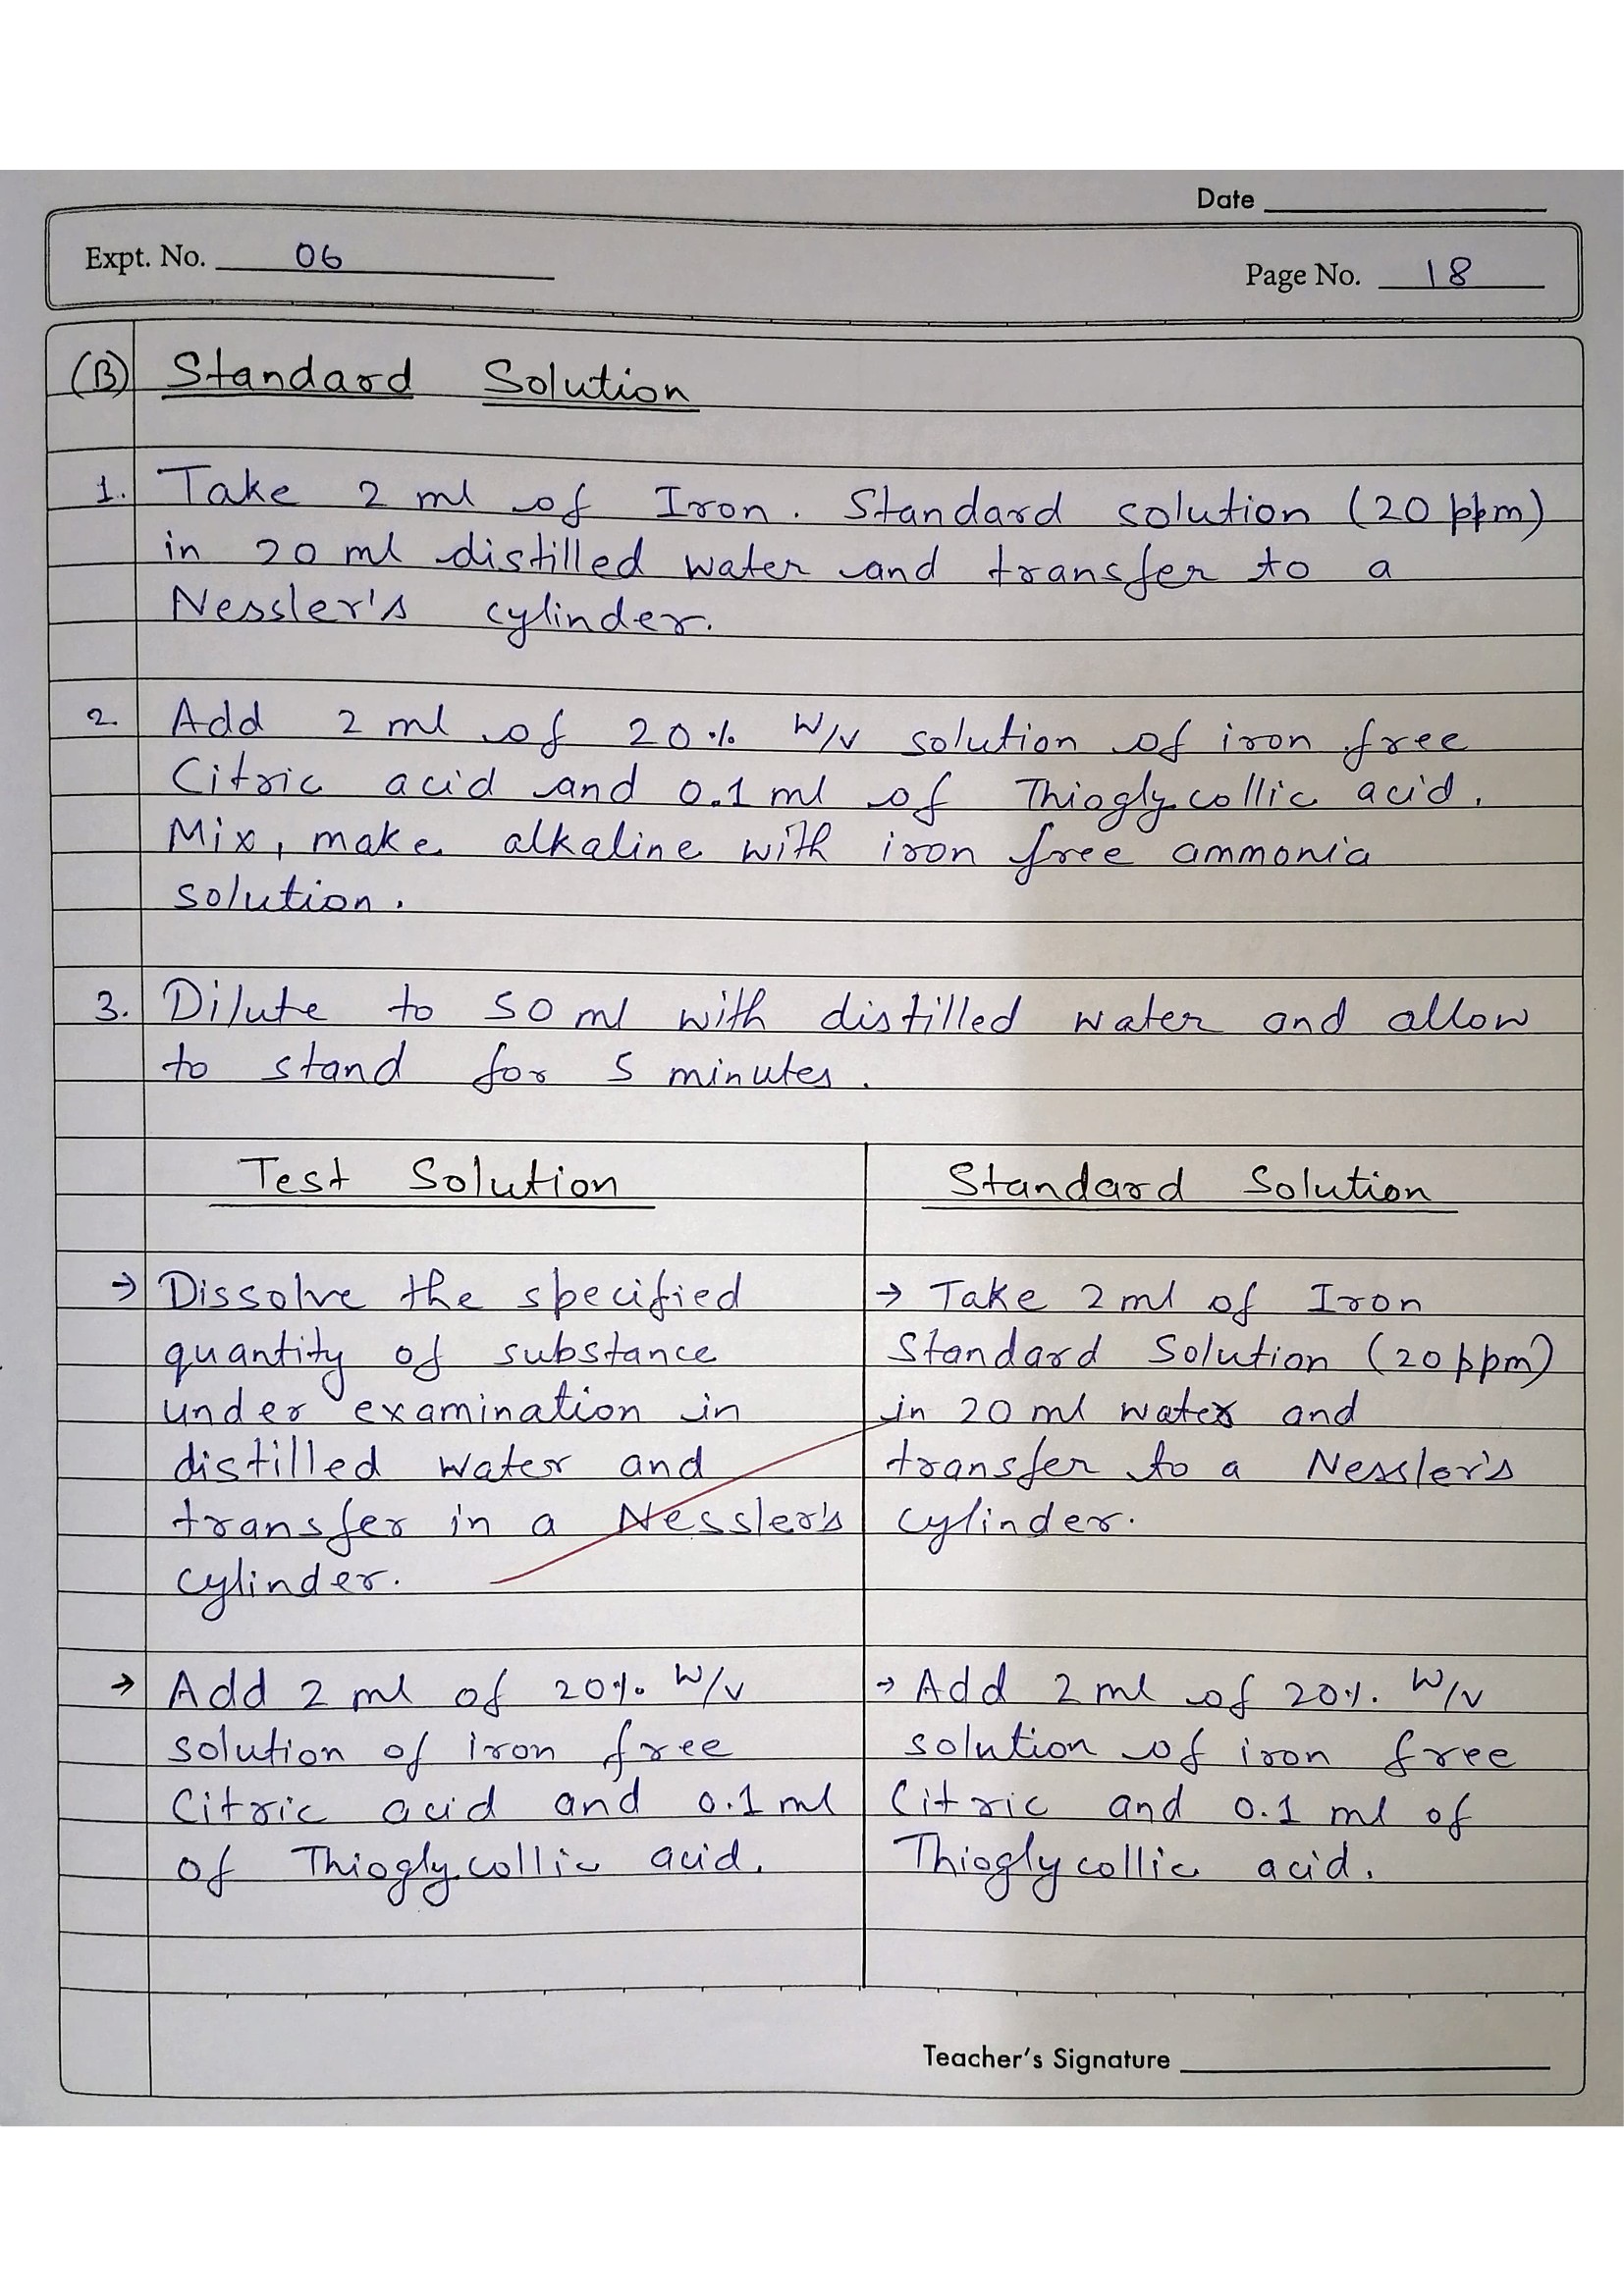 Date
Expt. No. 06
Page No. 18
(B) Standard Solution
1. Take 2 ml of Iron. Standard solution (20 ppm)
in 20 ml distilled water and transfer to a
Nessler's cylinder.
2. Add 2 ml of 20% W/V solution of iron free
Citric acid and 0.1 ml of Thioglycollic acid.
Mix, make alkaline with iron free ammonia
solution.
3. Dilute to 50 ml with distilled water and allow
to stand for 5 minutes.
Test Solution
→ Dissolve the specified
quantity of substance
under examination in
distilled water and
transfer in a Nessler's
cylinder.
→ Add 2 ml of 20% W/V
solution of iron free
Citric acid and 0.1 ml
of Thioglycollic acid.
Standard Solution
→ Take 2 ml of Iron
Standard Solution (20 ppm)
in 20 ml water and
transfer to a Nessler's
cylinder.
→ Add 2 ml of 20% W/V
solution of iron free
Citric and 0.1 ml of
Thioglycollic acid.
Teacher's Signature